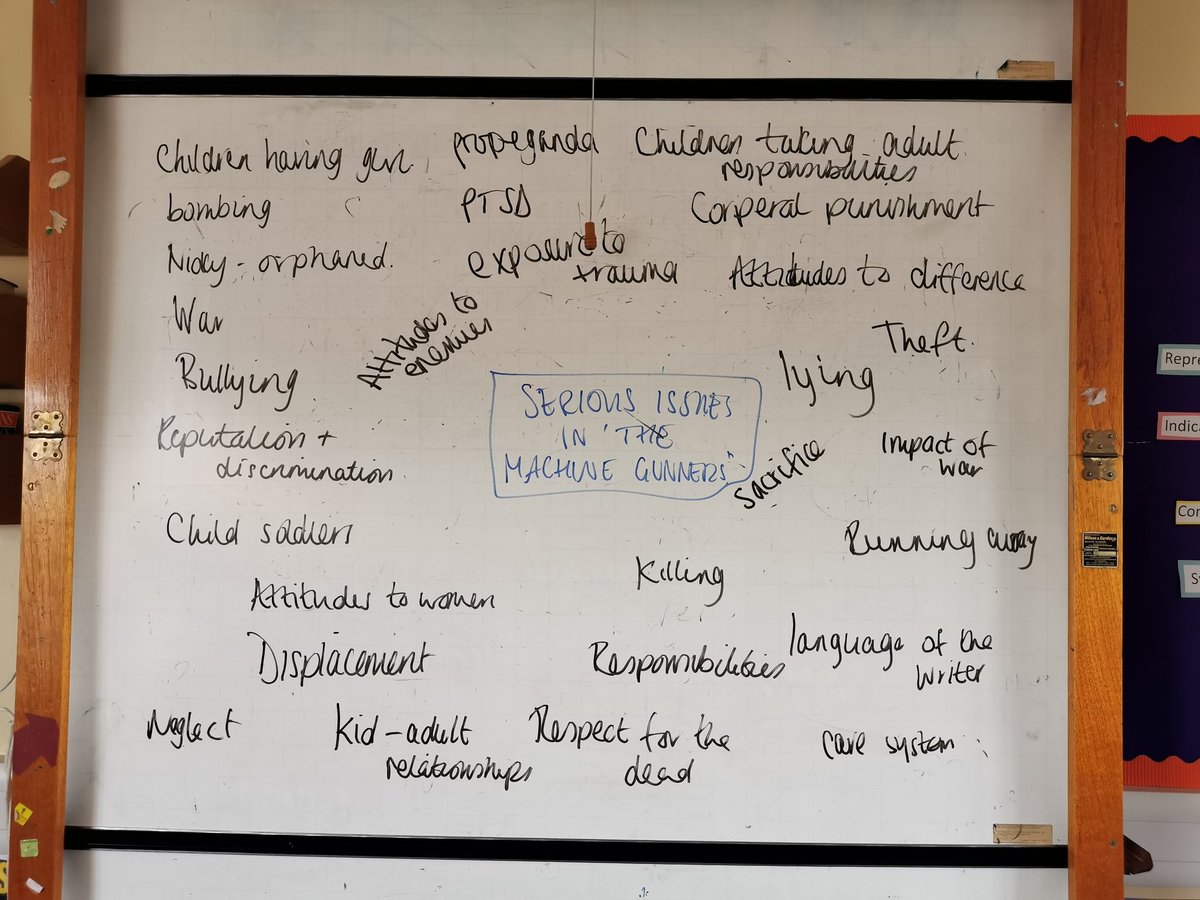 Children having gun.
propeganda
Children taking adult
responsibilities
bombing
PTSD
Corperal punishment
Nicky - orphaned.
exposure to
trauma
Attitudes to difference
War
Attitudes to
enemies
Theft.
Bullying
lying
SERIOUS ISSUES
IN 'THE
MACHINE GUNNERS"
Reputation +
discrimination
sacrifice
Impact of
war
Child soldiers
Running away
Killing
Attitudes to women
Displacement
Responsibilities
language of the
writer
Neglect
Kid-adult
relationships
Respect for the
dead
care system
Repre
Indica
Con